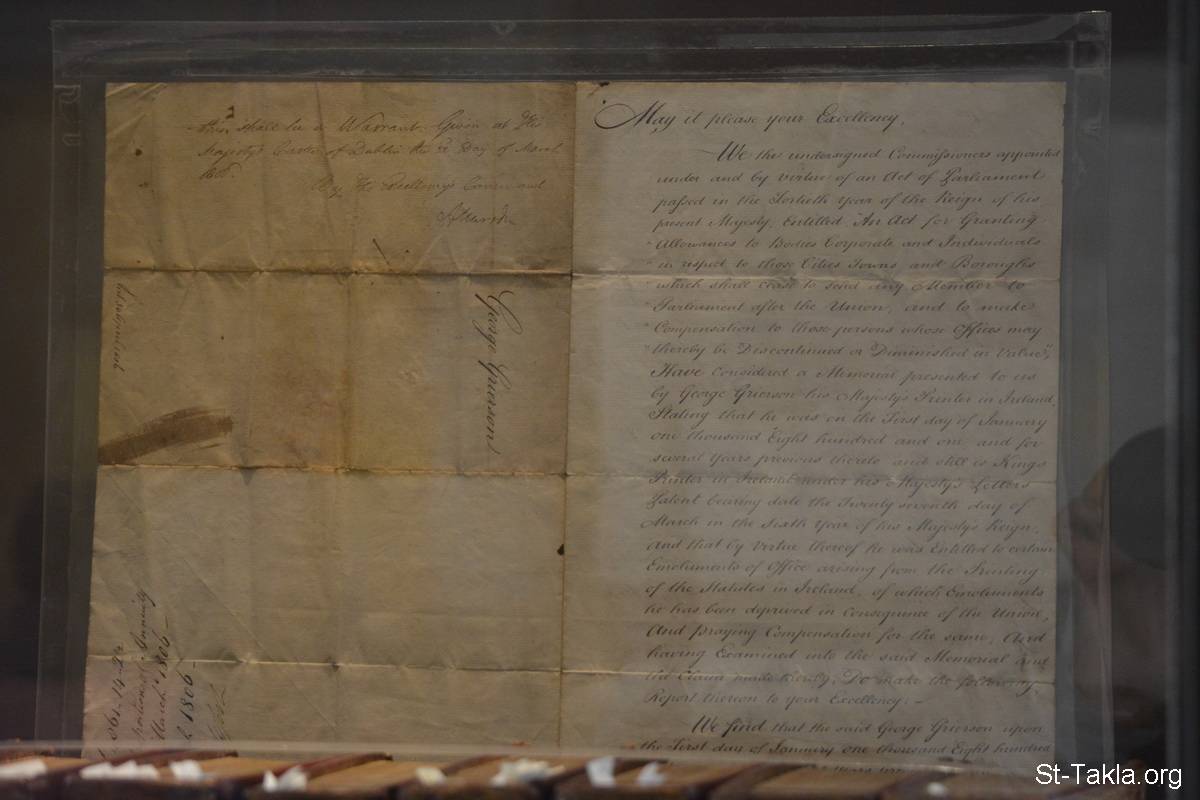 this shall be a Warrant Given at His
Majesty's Castle of Dublin the Day of March
By His Excellency's Command
George Grierson
March 1806
1806
May it please your Excellency,
We the undersigned Commissioners appointed
under and by virtue of an Act of Parliament
passed in the Fortieth Year of the Reign of his
present Majesty, Entitled "An Act for Granting
"Allowances to Bodies Corporate and Individuals
"in respect to those Cities Towns and Boroughs
"which shall cease to send any Member to
"Parliament after the Union, and to make
"Compensation to those persons whose Offices may
"thereby be Discontinued or Diminished in Value",
Have Considered a Memorial presented to us
by George Grierson his Majesty's Printer in Ireland,
Stating that he was on the First day of January
one thousand Eight hundred and one and for
several Years previous thereto and still is Kings
Printer in Ireland under his Majesty's Letters
Patent bearing date the Twenty seventh day of
March in the Sixth Year of his Majesty's Reign,
And that by Virtue thereof he was Entitled to certain
Emoluments of Office arising from the Printing
of the Statutes in Ireland, of which Emoluments
he has been deprived in Consequence of the Union,
And praying Compensation for the same, And
having Examined into the said Memorial and
the Claim made thereby, Do make the following
Report thereon to your Excellency:-
We find that the said George Grierson upon
the First day of January one thousand Eight hundred
St-Takla.org